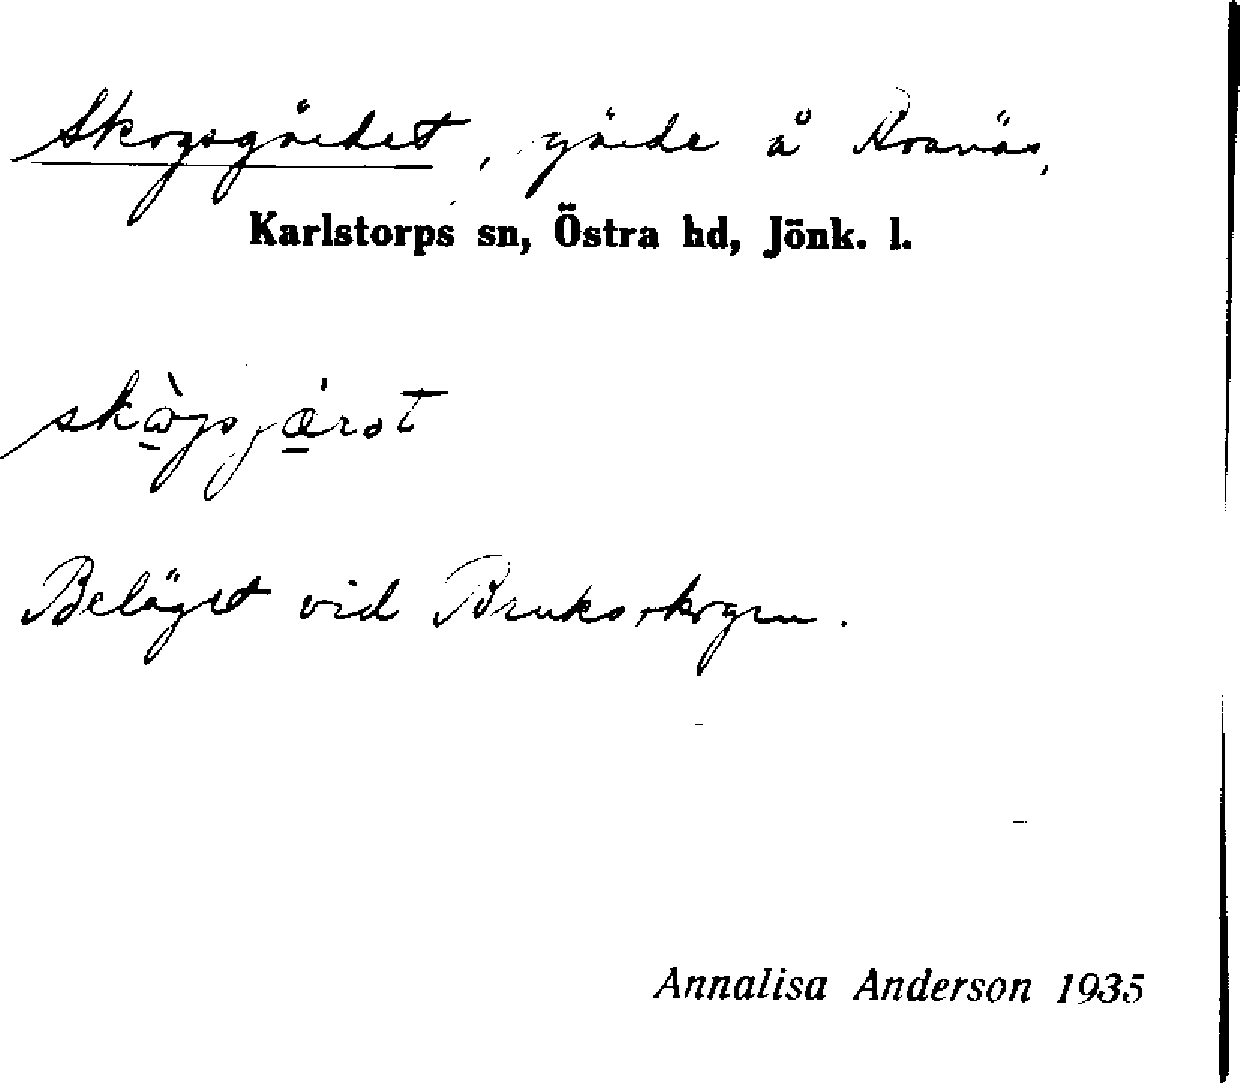 Skogsgärdet, gärde å Roanäs,
Karlstorps sn, Östra hd, Jönk. l.
Beläget vid Bruksskogen.
Annalisa Anderson 1935